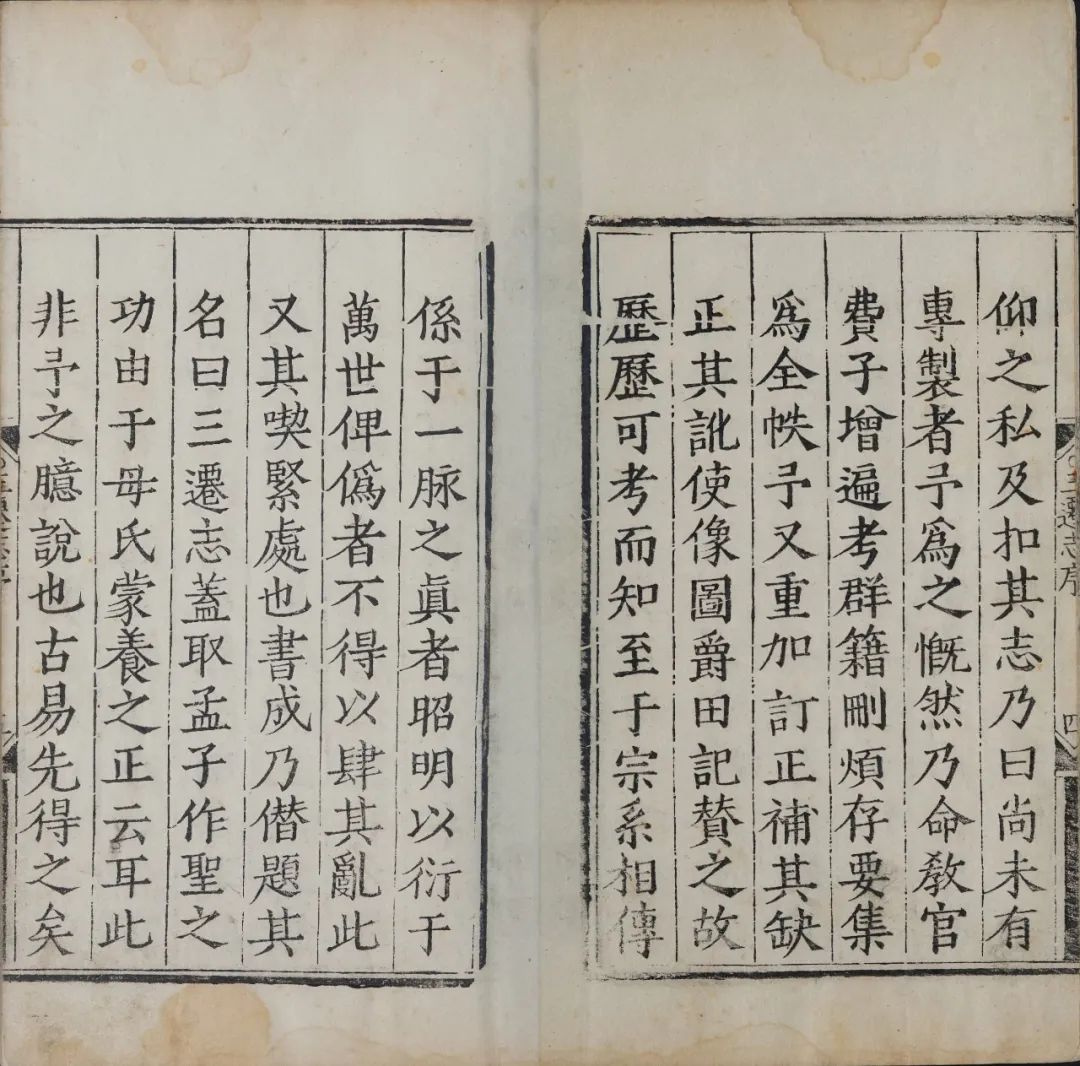 仰之私及扣其志乃曰尚未有
專製者予爲之慨然乃命教官
費子增遍考群籍刪煩存要集
爲全帙予又重加訂正補其缺
正其訛使像圖爵田記賛之故
歷歷可考而知至于宗系相傳
係于一脉之眞者昭明以衍于
萬世俾僞者不得以肆其亂此
又其喫緊處也書成乃僣題其
名曰三遷志蓋取孟子作聖之
功由于母氏蒙養之正云耳此
非予之臆說也古易先得之矣
三遷志序
四